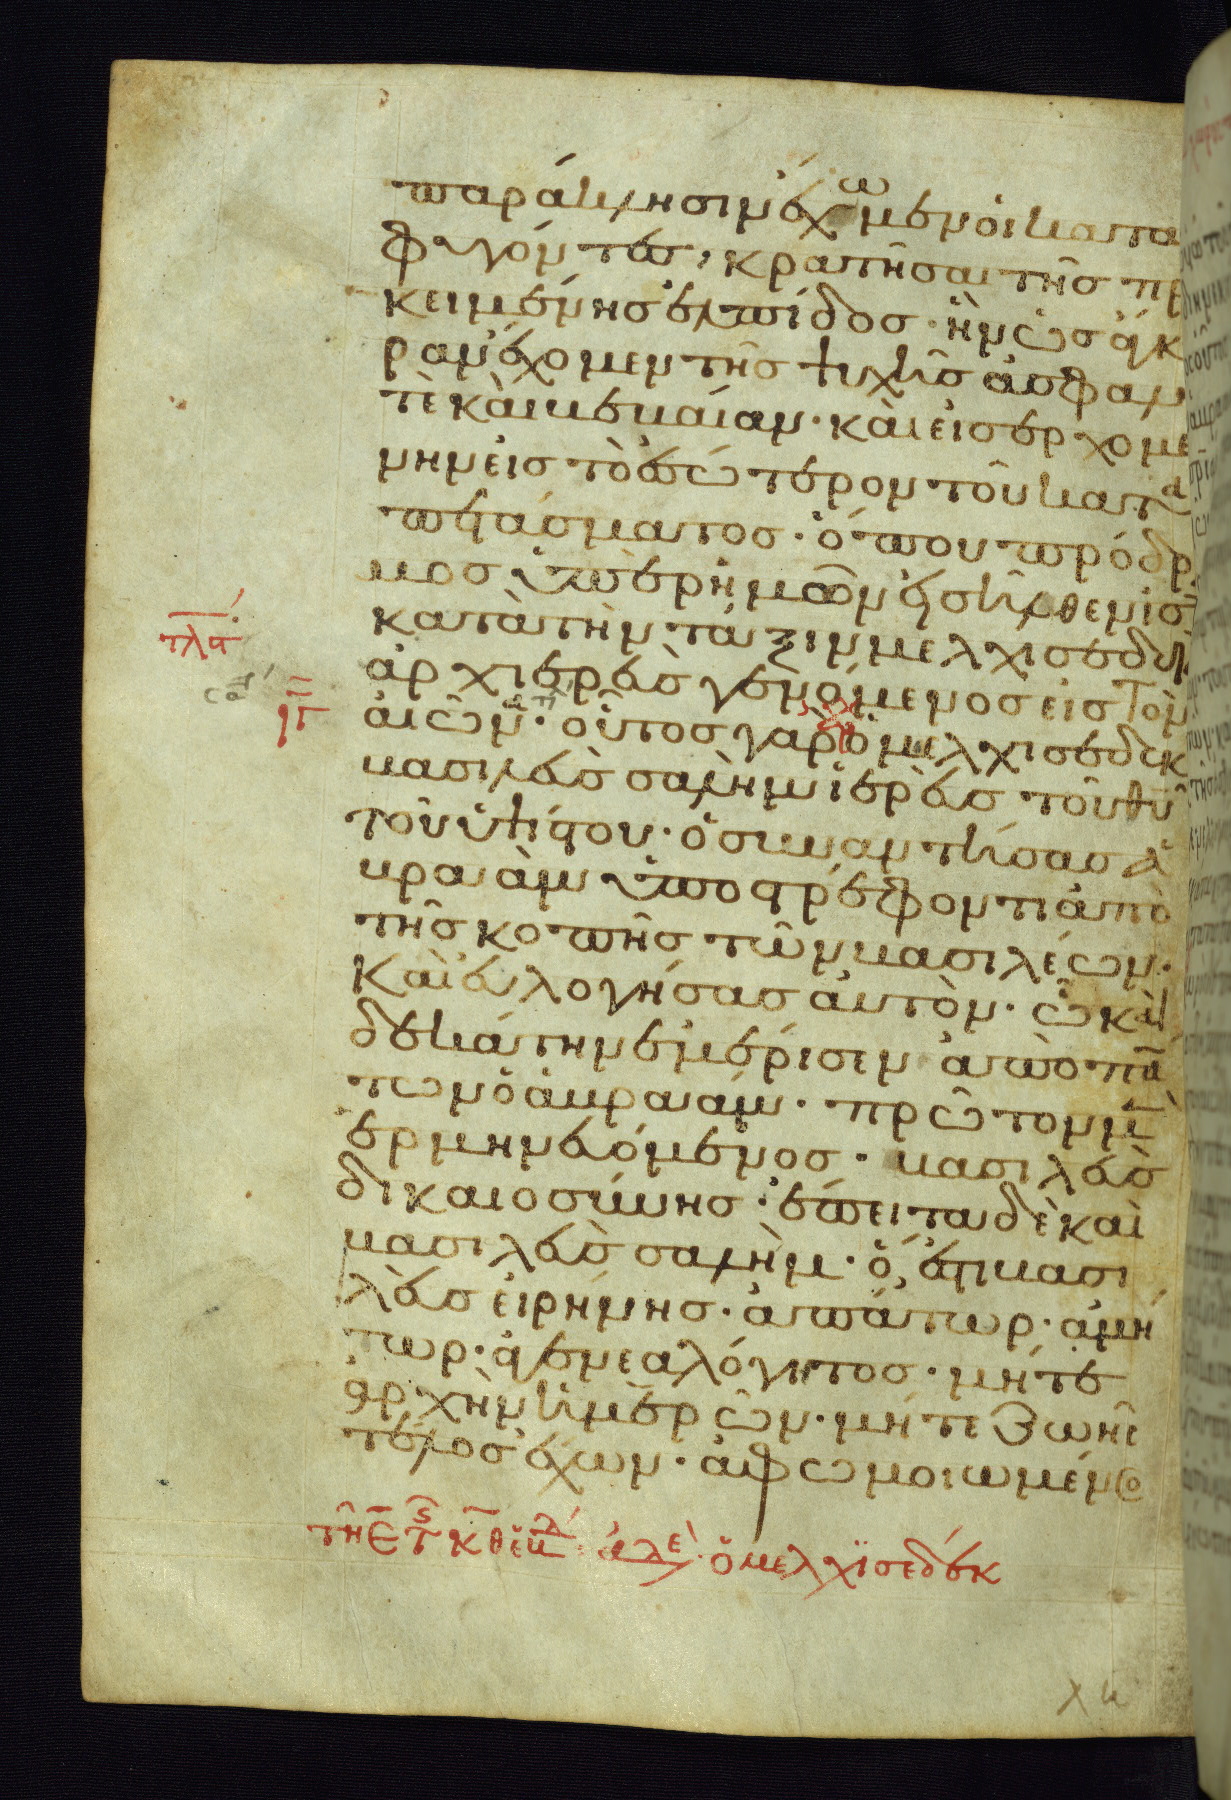 παράκλησιν ἔχωμεν οἱ κατα
φυγόντες, κρατῆσαι τῆς πρ
κειμένης ἐλπίδος· ἣν ὡς ἄγκ
ραν ἔχομεν τῆς ψυχῆς ἀσφαλῆ
τὲ καὶ βεβαίαν· καὶ εἰσερχομέ
νην εἰς τὸ ἐσώτερον τοῦ κατα
πετάσματος· ὅπου πρόδρ
μος ὑπὲρ ἡμῶν εἰσῆλθεν ἰς
κατὰ τὴν τάξιν μελχισεδὲκ
ἀρχιερεὺς γενόμενος εἰς τὸν
αἰῶν· οὗτος γὰρ ὁ μελχισεδὲκ
βασιλεὺς σαλὴμ ἱερεὺς τοῦ θυ
τοῦ ὑψίστου· ὁ συναντήσας ἀ
βραὰμ ὑποστρέφοντι ἀπὸ
τῆς κοπῆς τῶν βασιλέων·
καὶ εὐλογήσας αὐτὸν· ᾧ καὶ
δεκάτην ἐμέρισεν ἀπὸ πα
των ὁ ἀβραάμ· πρῶτον μ
ἑρμηνευόμενος· βασιλεὺς
δικαιοσύνης· ἔπειτα δὲ καὶ
βασιλεὺς σαλὴμ· ὅ ἐστι βασι
λεὺς εἰρήνης· ἀπάτωρ· ἀμή
τωρ· ἀγενεαλόγητος· μήτε
ἀρχὴν ἡμερῶν· μήτε ζωῆς
τέλος ἔχων· ἀφωμοιωμένος
ὁ μελχϊσεδέκ